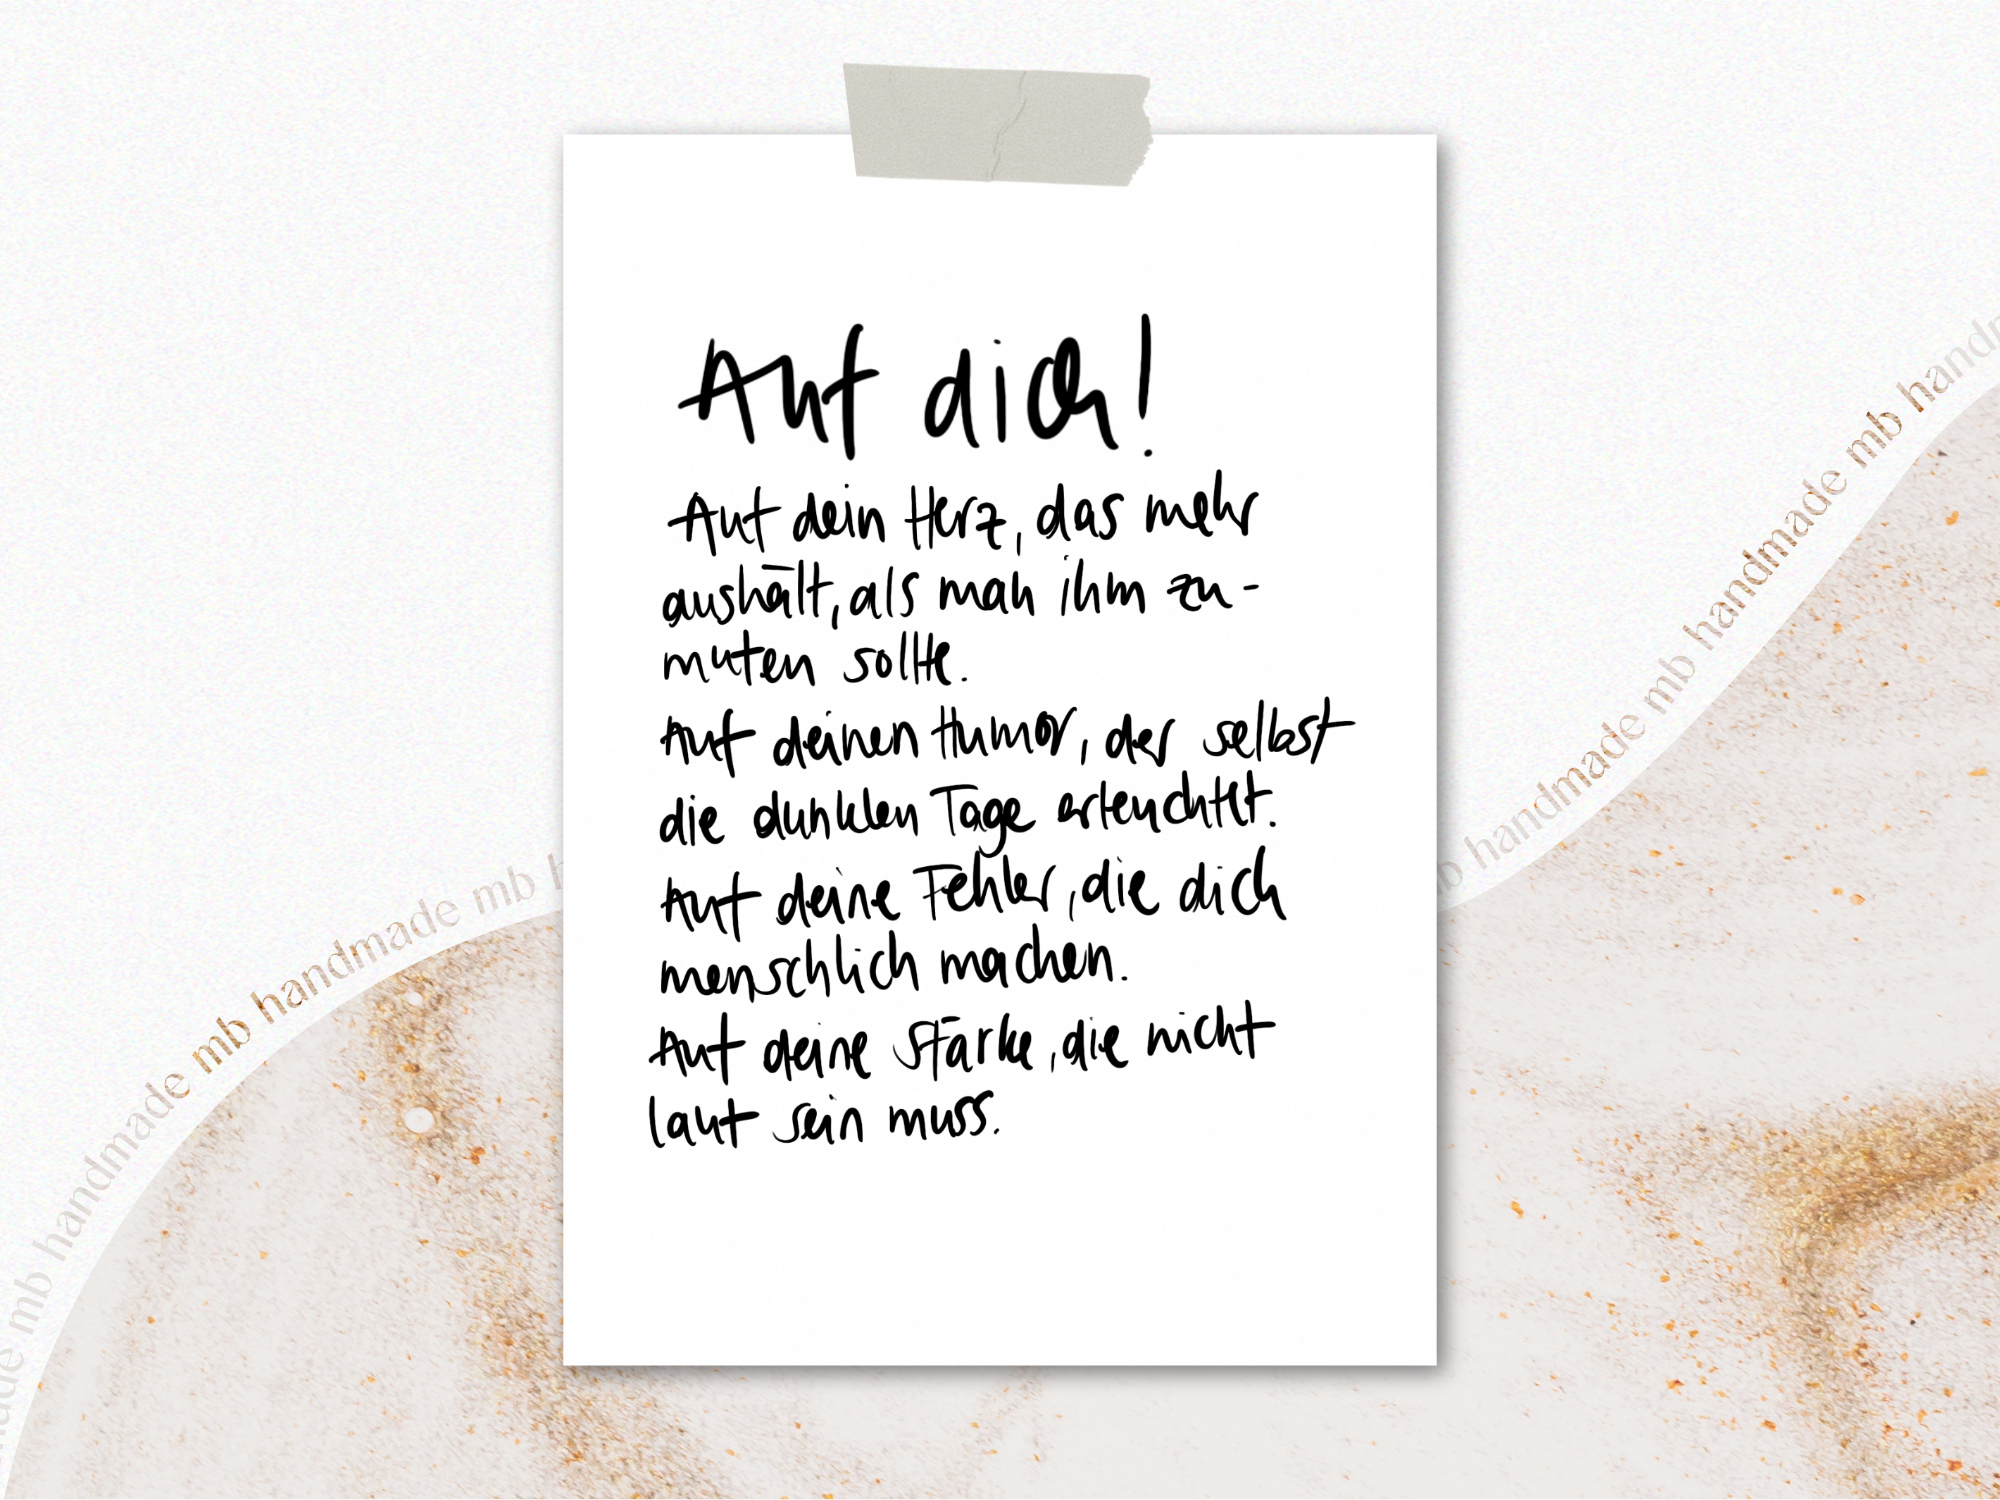 Auf dich!
Auf dein Herz, das mehr
aushält, als man ihm zu-
muten sollte.
Auf deinen Humor, der selbst
die dunklen Tage erleuchtet.
Auf deine Fehler, die dich
menschlich machen.
Auf deine Stärke, die nicht
laut sein muss.
mb handmade mb handmade mb handmade mb
mb handmade mb handmade mb handmade mb